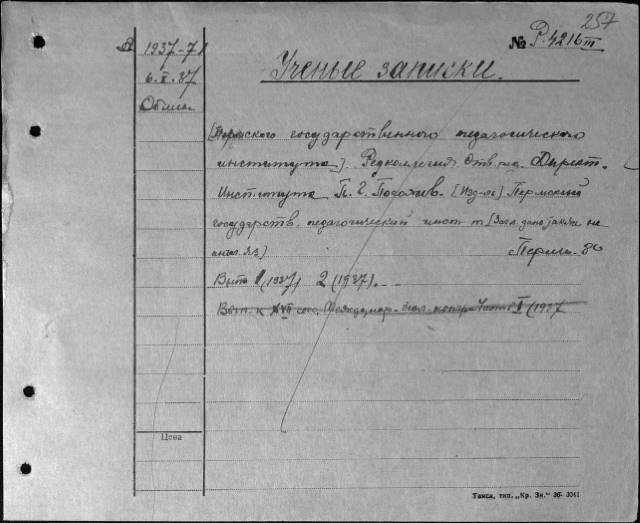 257
№ Р-4216 III
1937-71
6.X.37
Обмен
Ученые записки.
[Пермского государственного педагогического
института]. Редколлегия. Отв. ред. Директ.
Института П. Г. [Изд-ль] Пермский
государств. педагогический инст-т [Загл. дано также на
англ. яз]
Пермь. 8°
Вып. 1 (1937) 2 (1937).
Вып. к XVII сес. Междунар. геол. конгр. Часть I (1937
Цена
Тамся. тип. „Кр. Зн." 36- 3041